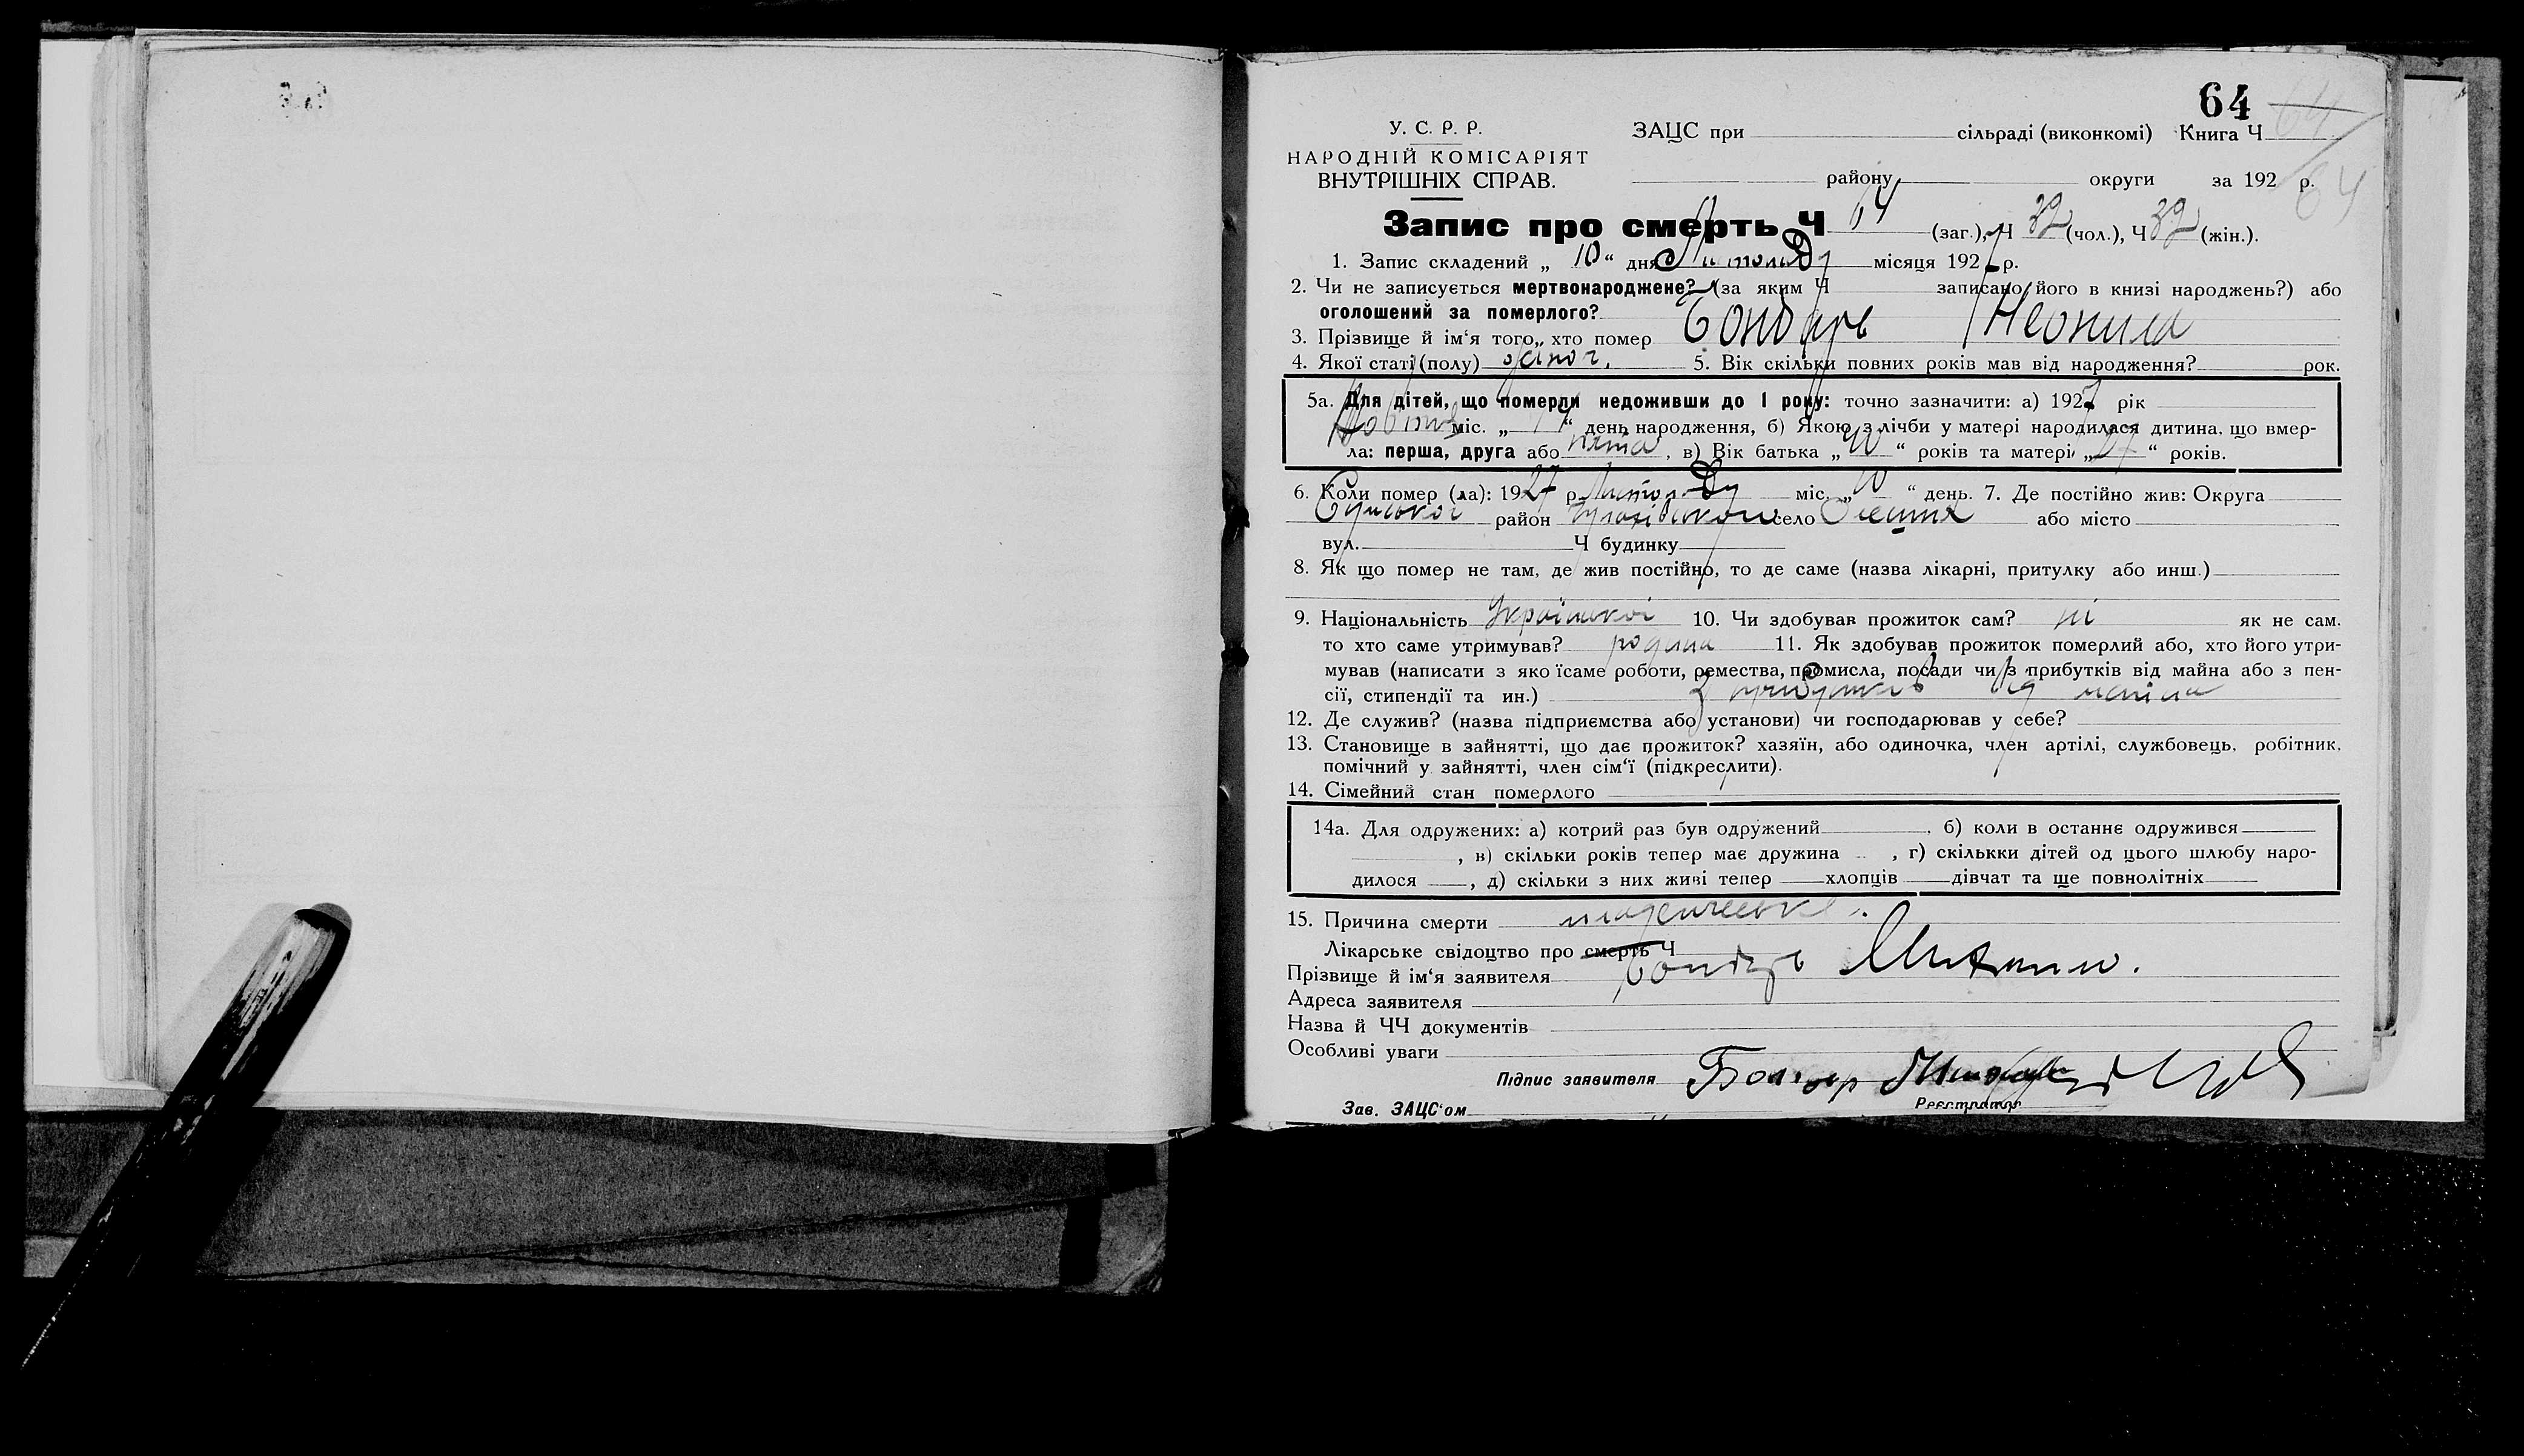 64
64
У. С. Р. Р. ЗАЦС при сільраді (виконкомі) Книга Ч
НАРОДНІЙ КОМІСАРІЯТ
ВНУТРІШНІХ СПРАВ. району округи за 192 р.
64
Запис про смерть Ч 64 (заг.), Ч 32 (чол.), Ч 32 (жін.).
1. Запис складений „ 10 “ дня місяця 1927 р.
2. Чи не записується мертвонароджене? (за яким Ч записано його в книзі народжень?) або
оголошений за померлого?
3. Прізвище й ім‘я того„ хто помер Бондарь Неонила
4. Якої статі (полу) жіноч. 5. Вік скільки повних років мав від народження? рок.
5а. Для дітей, що померли недоживши до 1 року: точно зазначити: а) 1927 рік
Жовтня міс. „ “ день народження, б) Якою з лічби у матері народилася дитина, що вмер-
ла: перша, друга або пята, в) Вік батька „ 40 “ років та матері „ “ років.
6. Коли помер (ла): 1927 р. міс. „ 10 “ день. 7. Де постійно жив: Округа
Сумської район село або місто
вул. Ч будинку
8. Як що помер не там, де жив постійно, то де саме (назва лікарні, притулку або инш.)
9. Національність Української 10. Чи здобував прожиток сам? ні як не сам.
то хто саме утримував? родина 11. Як здобував прожиток померлий або, хто його утри-
мував (написати з яко їсаме роботи, ремества, промисла, посади чи з прибутків від майна або з пен-
сії, стипендії та ин.) З прибутків від майна
12. Де служив? (назва підприємства або установи) чи господарював у себе?
13. Становище в зайнятті, що дає прожиток? хазяїн, або одиночка, член артілі, службовець, робітник,
помічний у зайнятті, член сім‘ї (підкреслити).
14. Сімейний стан померлого
14а. Для одружених: а) котрий раз був одружений , б) коли в останнє одружився
, в) скільки років тепер має дружина , г) скількки дітей од цього шлюбу наро-
дилося , д) скільки з них живі тепер хлопців дівчат та ще повнолітніх
15. Причина смерти
Лікарське свідоцтво про смерть Ч
Прізвище й ім‘я заявителя Бондарь
Адреса заявителя
Назва й ЧЧ документів
Особливі уваги
Підпис заявителя Бондар
Зав. ЗАЦС‘ом Реєстратор